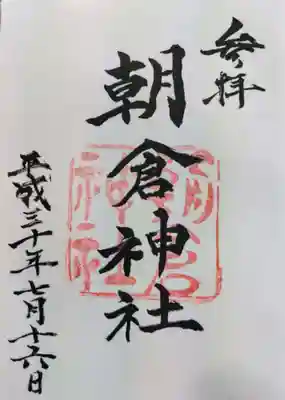 参拝
朝倉神社
平成三十年七月十六日
朝倉神社